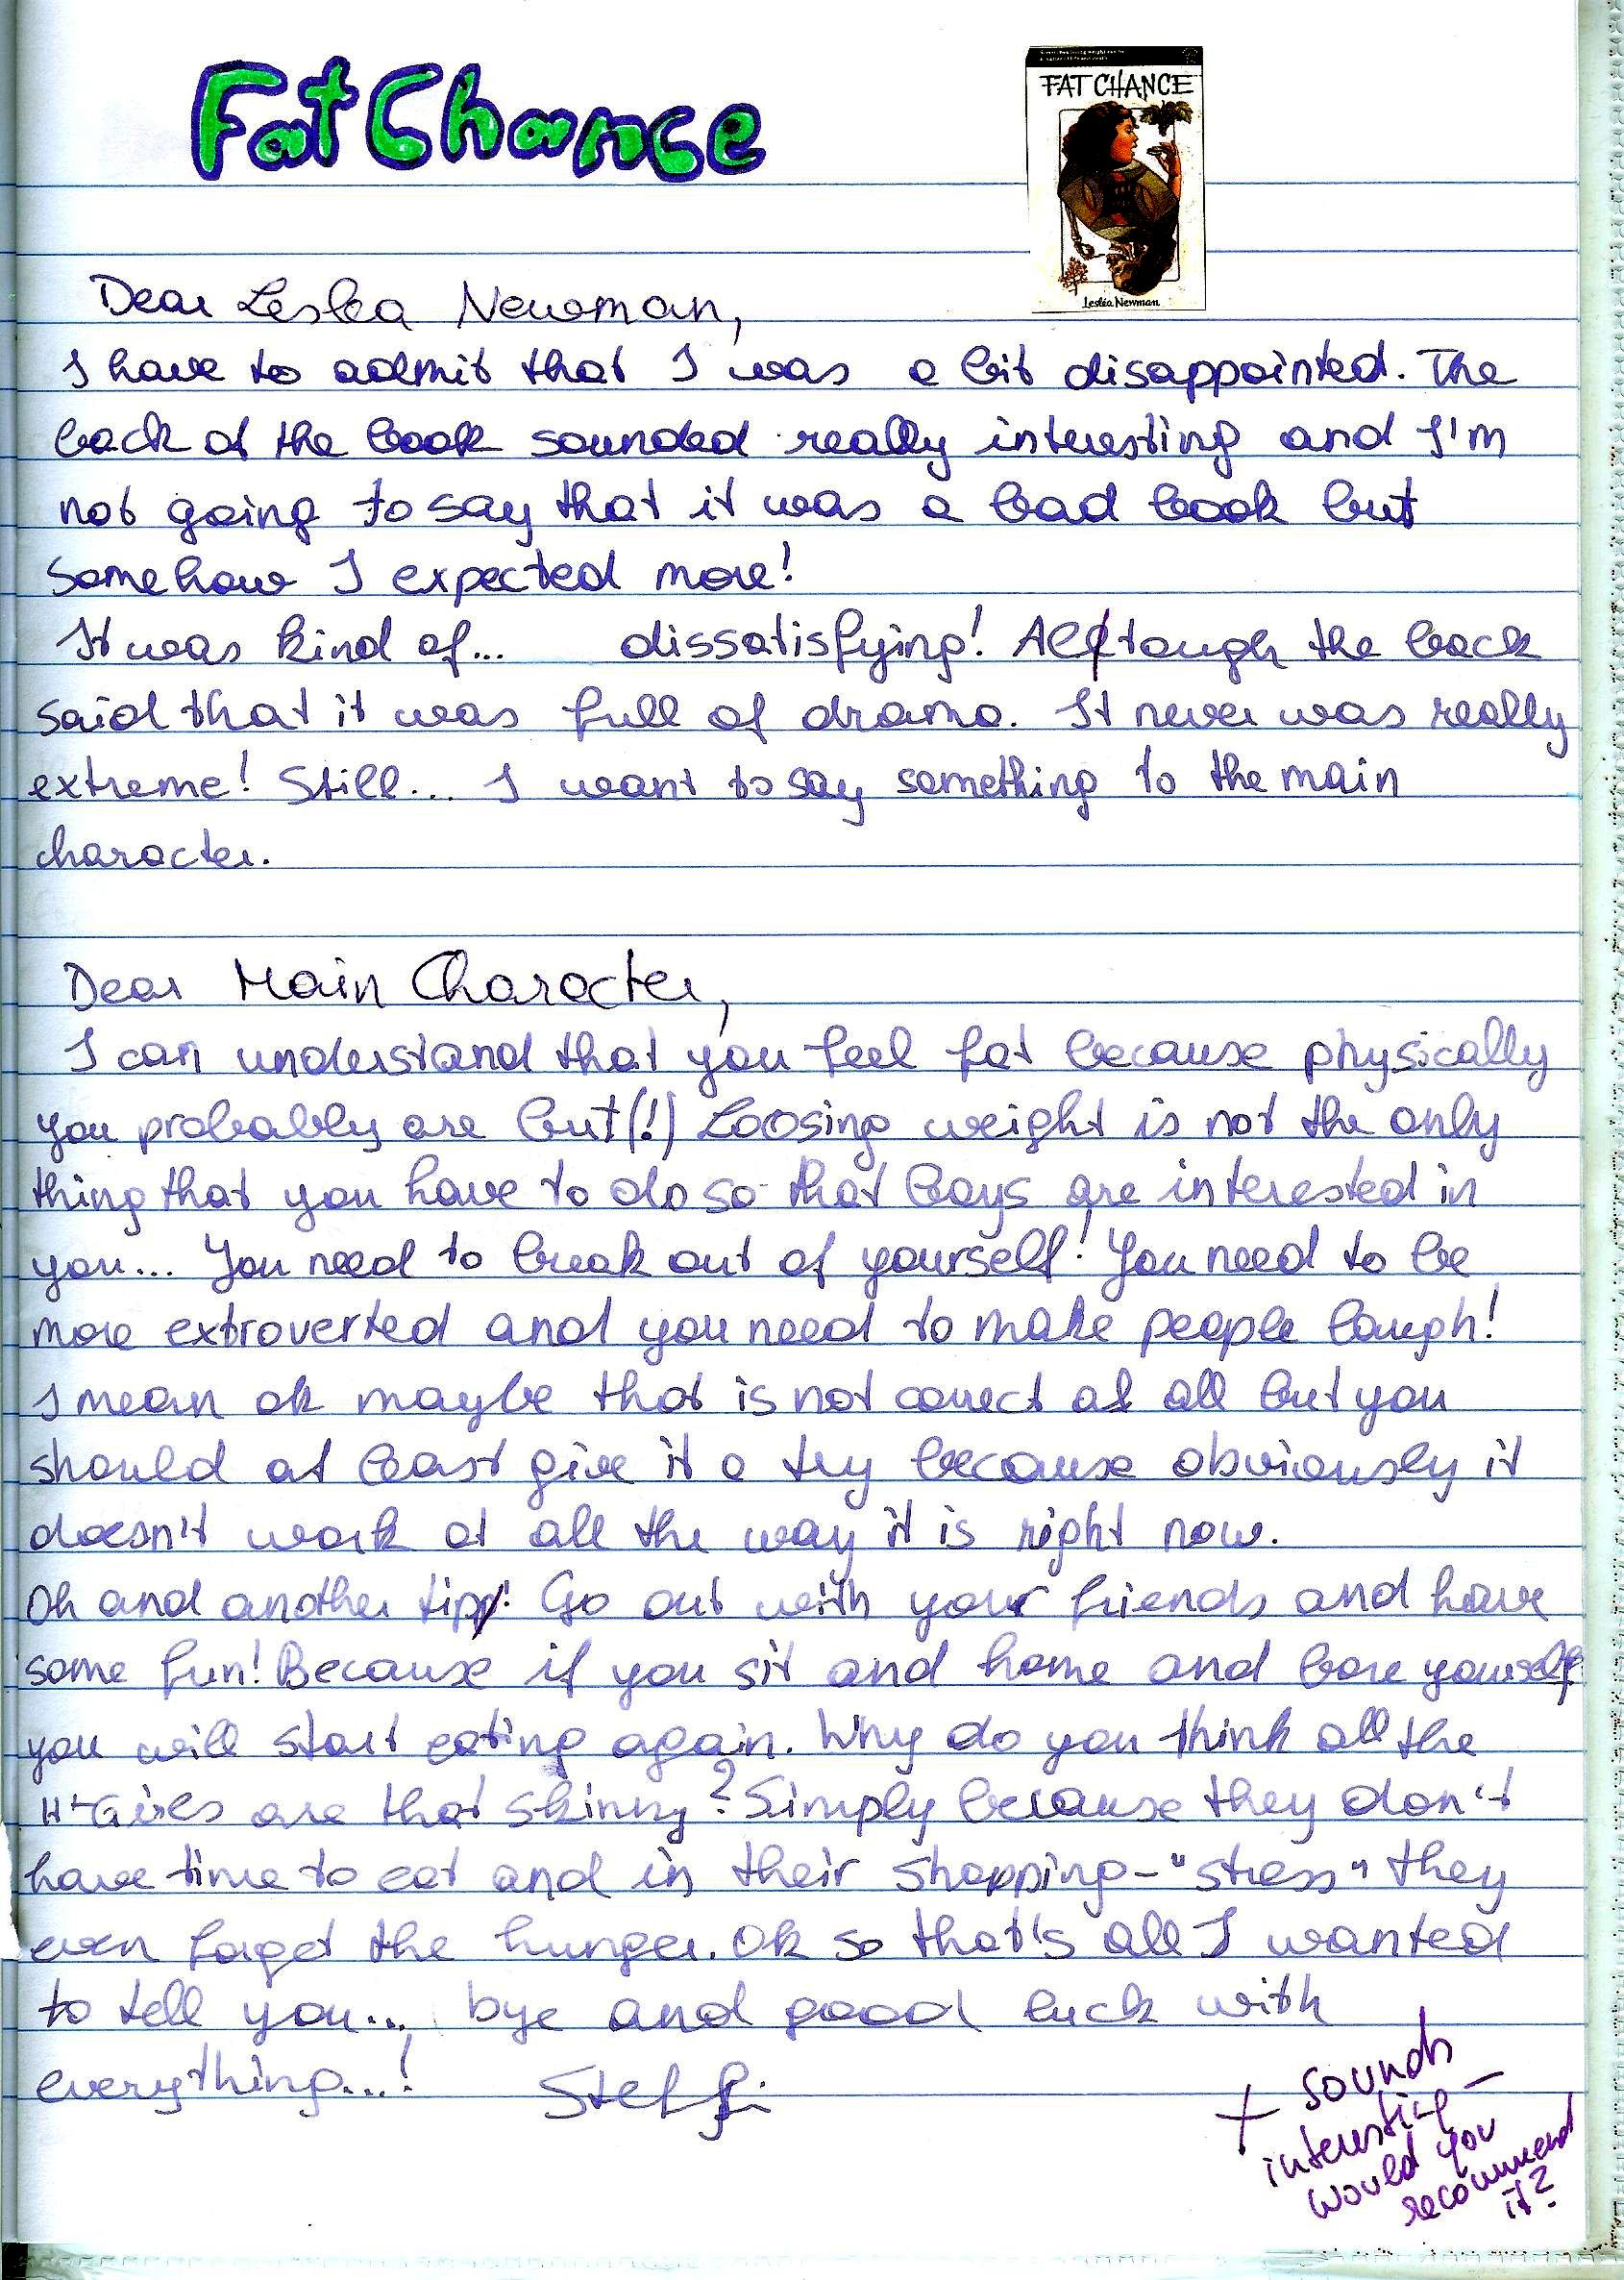 Fat Chance
FAT CHANCE
Lesléa Newman
Dear Leslea Newman,
I have to admit that I was a bit disappointed. The
back of the book sounded really interesting and I'm
not going to say that it was a bad book but
somehow I expected more!
It was kind of... dissatisfying! Altough the back
said that it was full of drama. It never was really
extreme! Still... I want to say something to the main
character.
Dear Main Character,
I can understand that you feel fat because physically
you probably are but(!) Loosing weight is not the only
thing that you have to do so that boys are interested in
you... You need to break out of yourself! You need to be
more extroverted and you need to make people laugh!
I mean ok maybe that is not correct at all but you
should at least give it a try because obviously it
doesn't work at all the way it is right now.
Oh and another tip! Go out with your friends and have
some fun! Because if you sit and home and bore yourself
you will start eating again. Why do you think all the
It-Girls are that skinny? Simply because they don't
have time to eat and in their shopping-"stress" they
even forget the hunger. Ok so that's all I wanted
to tell you... bye and good luck with
everything...! Steffi
+ sounds
interesting –
would you
recommend
it?